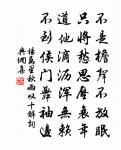 不是檐聲不放眠
只將愁思壓衰年
道他滴瀝渾無賴
不到侯門舞袖邊
楊萬里秋雨嘆十解詞
典網集